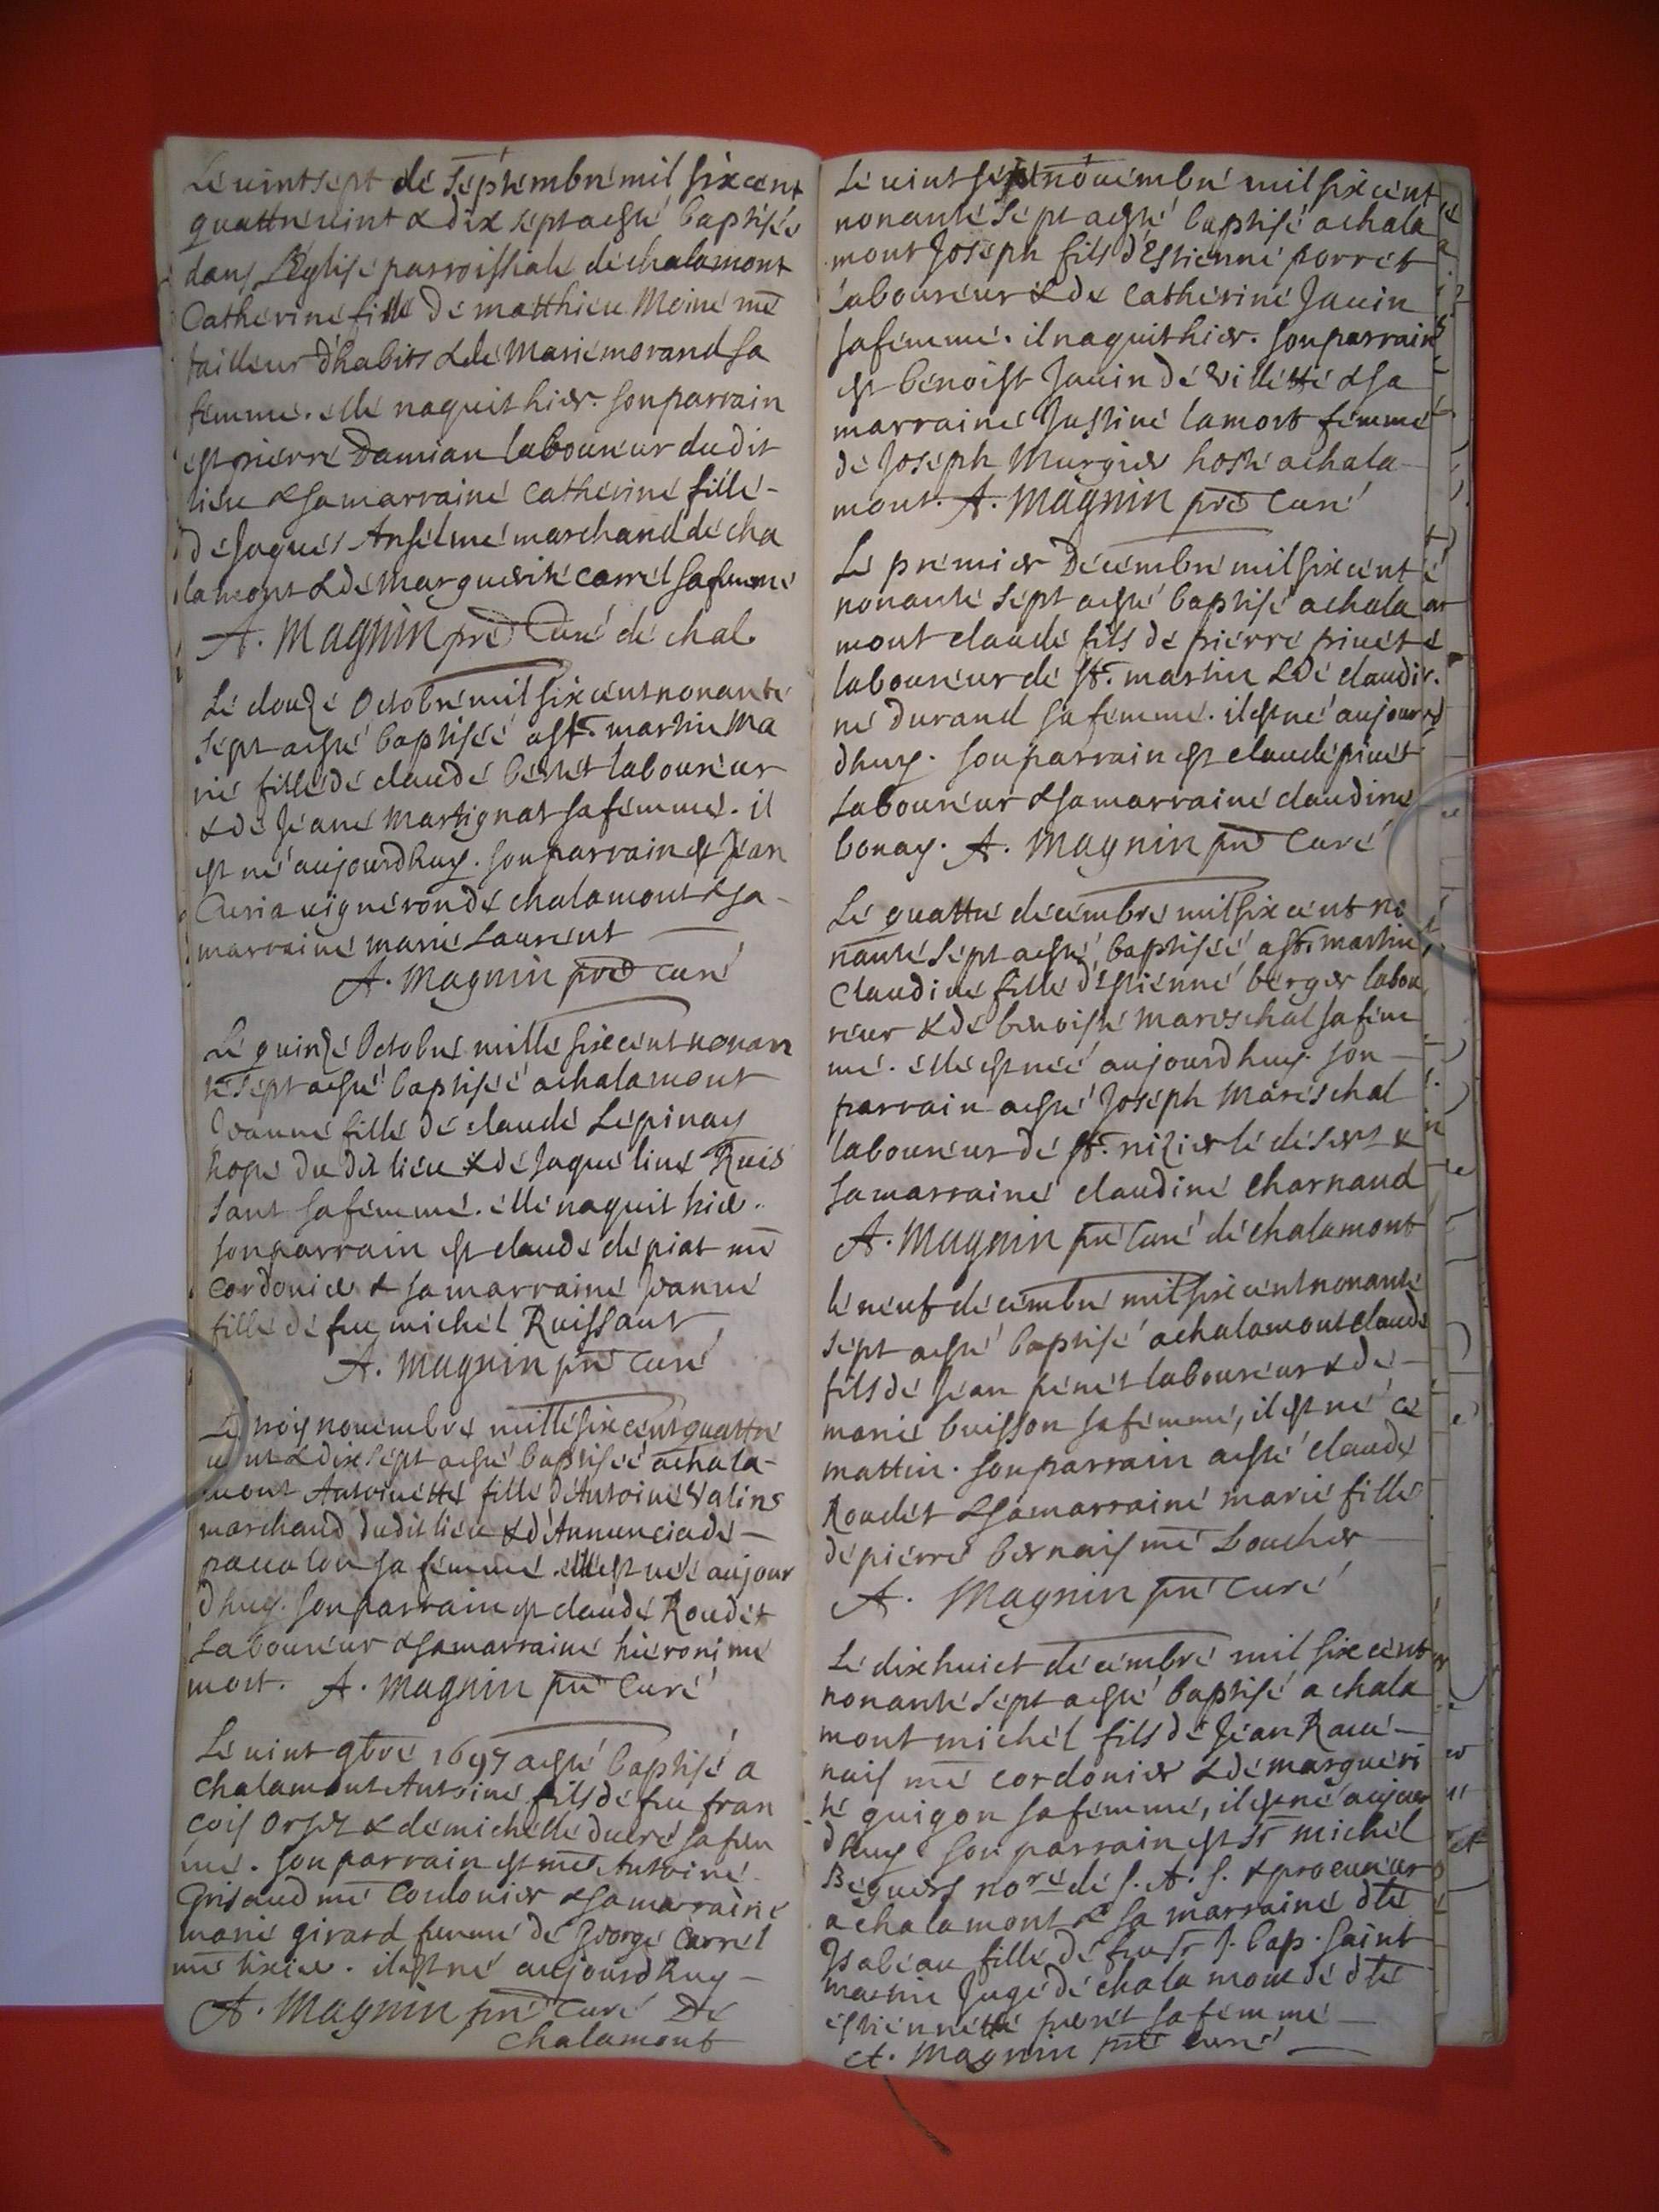 Le uint sept de Septembre mil six cent
quattre uint & dix sept a esté baptisée
dans l'Eglise parroissiale de chalamont
Catherine fille de matthieu Moine me
tailleur d'habits & de Marie morand sa
femme. elle naquit hier. son parrain
est pierre Damian laboureur du dit
lieu & sa marraine catherine fille
de Jaques Anselme marchand de cha
lamont & de Marguerite carrel sa femme
A. Magnin pre Curé de chal.
Le douze Octobre mil six cent nonante
sept a esté baptisée a st. martin Ma
rie fille de claude benet laboureur
& de Jeane Martignat sa femme. il
est né aujourdhuy. son parrain est Jean
Curia uigneron de chalamont & sa
marraine marie Laurent
A. Magnin pre curé
Le quinze Octobre mille six cent nonan
te sept a esté baptisée a chalamont
Jeanne fille de claude Lepinay
hope du dit lieu & de Jaqueline Ruis
sant sa femme. elle naquit hier.
son parrain est claude depiat me
cordonier & sa marraine Jeanne
fille de feu michel Ruissant
A. Magnin pre curé
Le trois nouembre mille six cent quattre
uint & dix sept a esté baptisée a chala-
mont Antoinette fille d'Antoine Valins
marchand du dit lieu & d'Annunciade
paualon sa femme. elle est née aujour
dhuy. son parrain est claude Roudet
Laboureur & sa marraine hieronime
mort. A. Magnin pre Curé
Le uint 9bre 1697 a esté baptisé a
chalamont Antoine fils de feu fran
cois Orset & de michelle ducré sa fem
me. son parrain est me Antoine
Grisaud me Cordonier & sa marraine
marie girard femme de George Carrel
me tixier. il est né aujourdhuy
A. Magnin pre Curé De
chalamont
Le uint sept nouembre mil six cent
nonante sept a esté baptisé a chala
mont Joseph fils d'Estienne porret
laboureur & de Catherine Jauin
sa femme. il naquit hier. son parrain
est benoist Jauin de villette & sa
marraine Justine lamort femme
de Joseph Murgier hoste a chala-
mont. A. Magnin pre Curé
Le premier Decembre mil six cent
nonante sept a esté baptisé a chala
mont claude fils de pierre piuet
laboureur de st. martin & de claudi
ne durand sa femme. il est né aujour
dhuy. son parrain est claude piuet
Laboureur & sa marraine claudine
bonay. A. Magnin pre Curé
Le quattre decembre mil six cent no
nante sept a esté baptisée a st. martin
Claudine fille d'Estienne berger labou
reur & de benoiste mareschal sa fem
me. elle est née aujourdhuy. son
parrain a esté Joseph Mareschal
laboureur de st. nizier le desert &
sa marraine claudine charnaud
A. Magnin pre Curé de chalamont
le neuf decembre mil six cent nonante
sept a esté baptisé a chalamont claude
fils de Jean penet laboureur & de
marie buisson sa femme, il est né ce
mattin. son parrain a esté claude
Roudet & sa marraine marie fille
de pierre bernais me boucher
A. Magnin pre curé
Le dixhuict decembre mil six cent
nonante sept a esté baptisé a chala
mont michel fils de Jean Raue-
nais me cordonier & de margueri
te guigon sa femme, il est né aujour
dhuy son parrain est sr michel
Beguers nore de S. A. S. & procureur
a chalamont & sa marraine dlle
Ysabeau fille de feu sr J. bap. saint
martin Juge de chalamont & de dlle
estiennette peret sa femme
A. Magnin pre curé